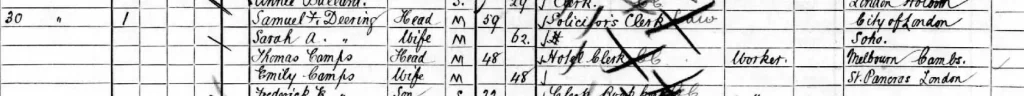 S. 29 Clerk. London
30 " 1 Samuel F. Deering Head M 59 Solicitor's Clerk Law City of London
Sarah A. " Wife M 62. Soho.
Thomas Camps Head M 48 Hotel Clerk Worker. Melbourn Cambs.
Emily Camps Wife M 48 St. Pancras London
Frederick Son S 22 Clerk